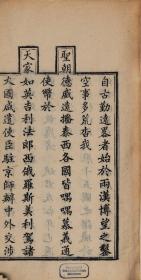 自古勤遠畧者始於兩漢博望之鑿
空事多荒杳我
聖朝德威遠播泰西各國皆喁喁慕義通
使幣於
天家如英吉利法郎西俄羅斯美利駕諸
大國咸遣使臣駐京師辦中外交涉